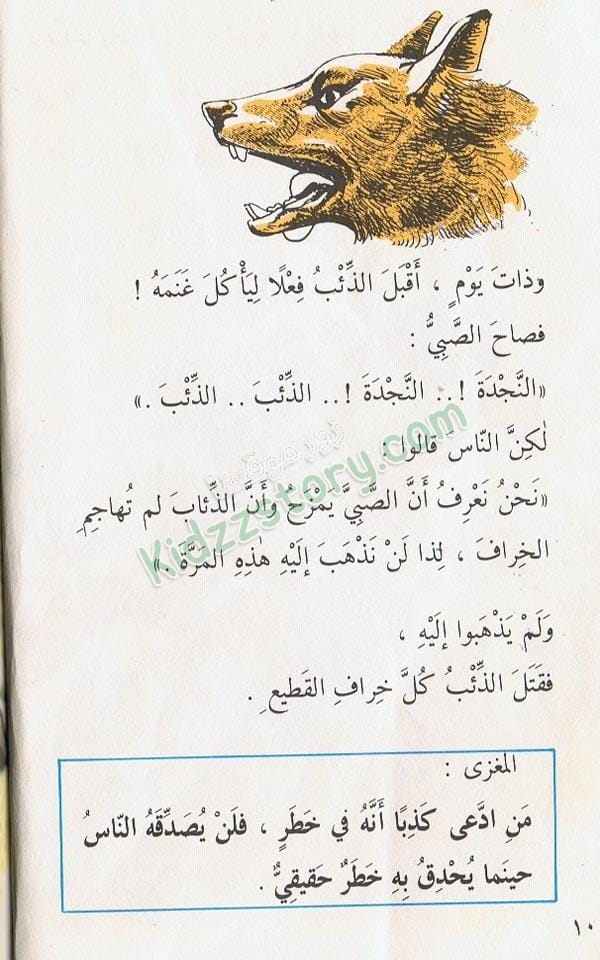 وَذاتَ يَوْمٍ ، أَقْبَلَ الذِّئْبُ فِعْلًا لِيَأْكُلَ غَنَمَهُ !
فصاحَ الصَّبِيُّ :
«النَّجْدَةَ !.. النَّجْدَةَ !.. الذِّئْبَ .. الذِّئْبَ .»
لٰكِنَّ النّاسَ قالوا :
«نَحْنُ نَعْرِفُ أَنَّ الصَّبِيَّ يَمْزَحُ وأَنَّ الذِّئابَ لم تُهاجِمِ
الخِرافَ ، لِذا لَنْ نَذْهَبَ إلَيْهِ هٰذِهِ المَرَّةَ .»
وَلَمْ يَذْهَبوا إلَيْهِ ،
فقَتَلَ الذِّئْبُ كُلَّ خِرافِ القَطيعِ .
المَغزى :
مَنِ ادَّعى كَذِبًا أَنَّهُ في خَطَرٍ ، فلَنْ يُصَدِّقَهُ النّاسُ
حينَما يُحْدِقُ بِهِ خَطَرٌ حَقيقِيٌّ .
١٠
Kidzzstory.com